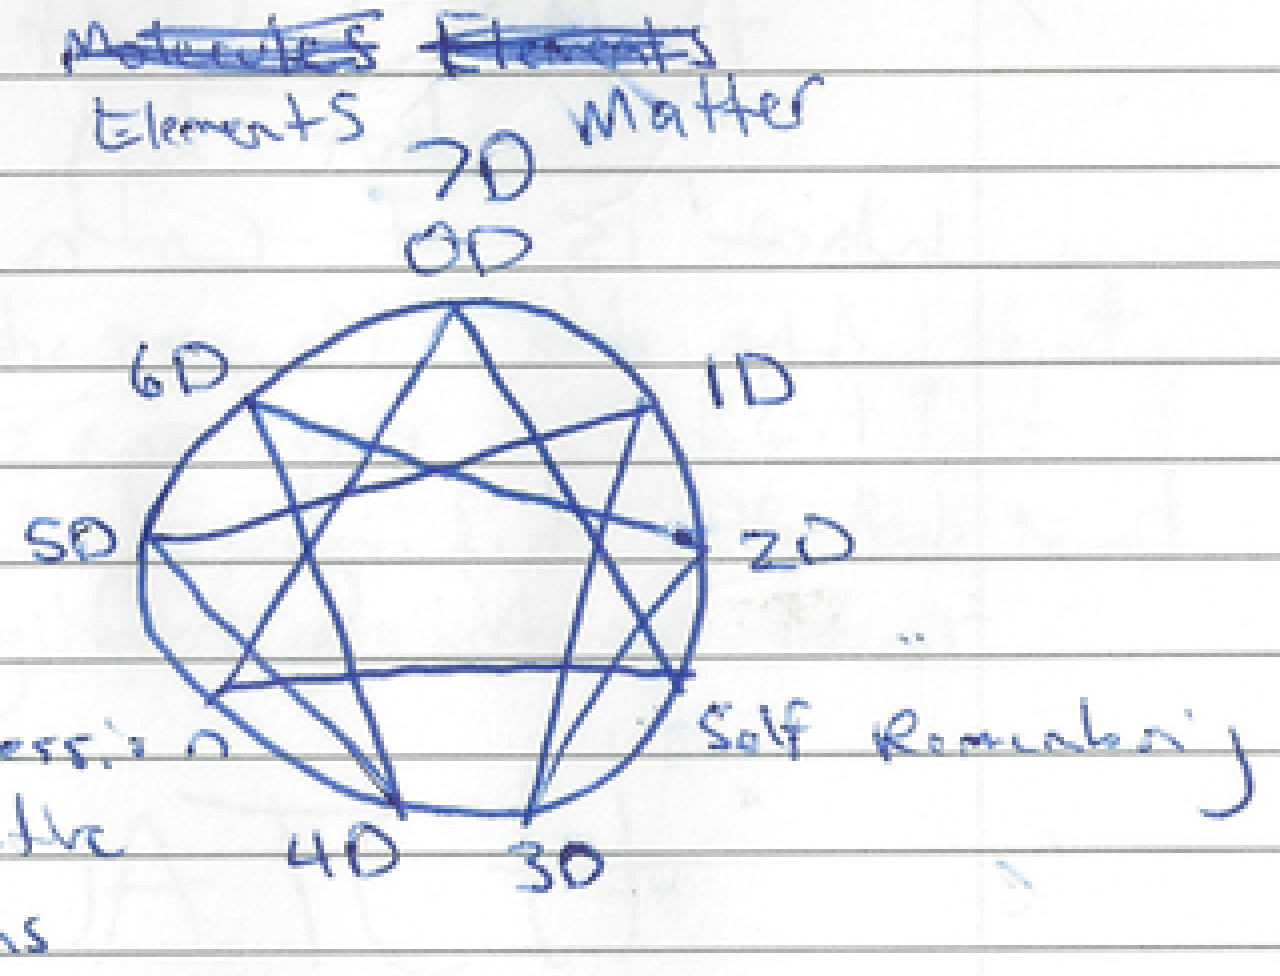 Molecules Elements
Elements Matter
7D
0D
6D 1D
5D 2D
Self Remembering
the
4D 3D